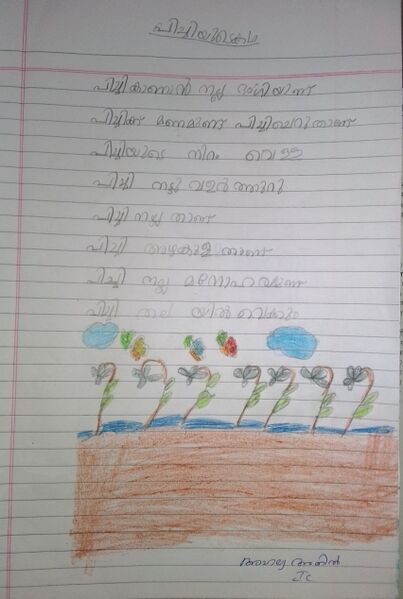 പിച്ചിയുടെകഥ
പിച്ചികാണാൻ നല്ല ഭംഗിയുണ്ട്
പിച്ചിക്ക് മണമുണ്ട് പിച്ചിചെറുതാണ്
പിച്ചിയുടെ നിറം വെള്ള
പിച്ചി നട്ടു വളർത്താറു
പിച്ചി നല്ല താണ്
പിച്ചി അഴകുള്ളതാണ്
പിച്ചി നല്ല മനോഹരമാണ്
പിച്ചി തല യിൽ വെക്കും